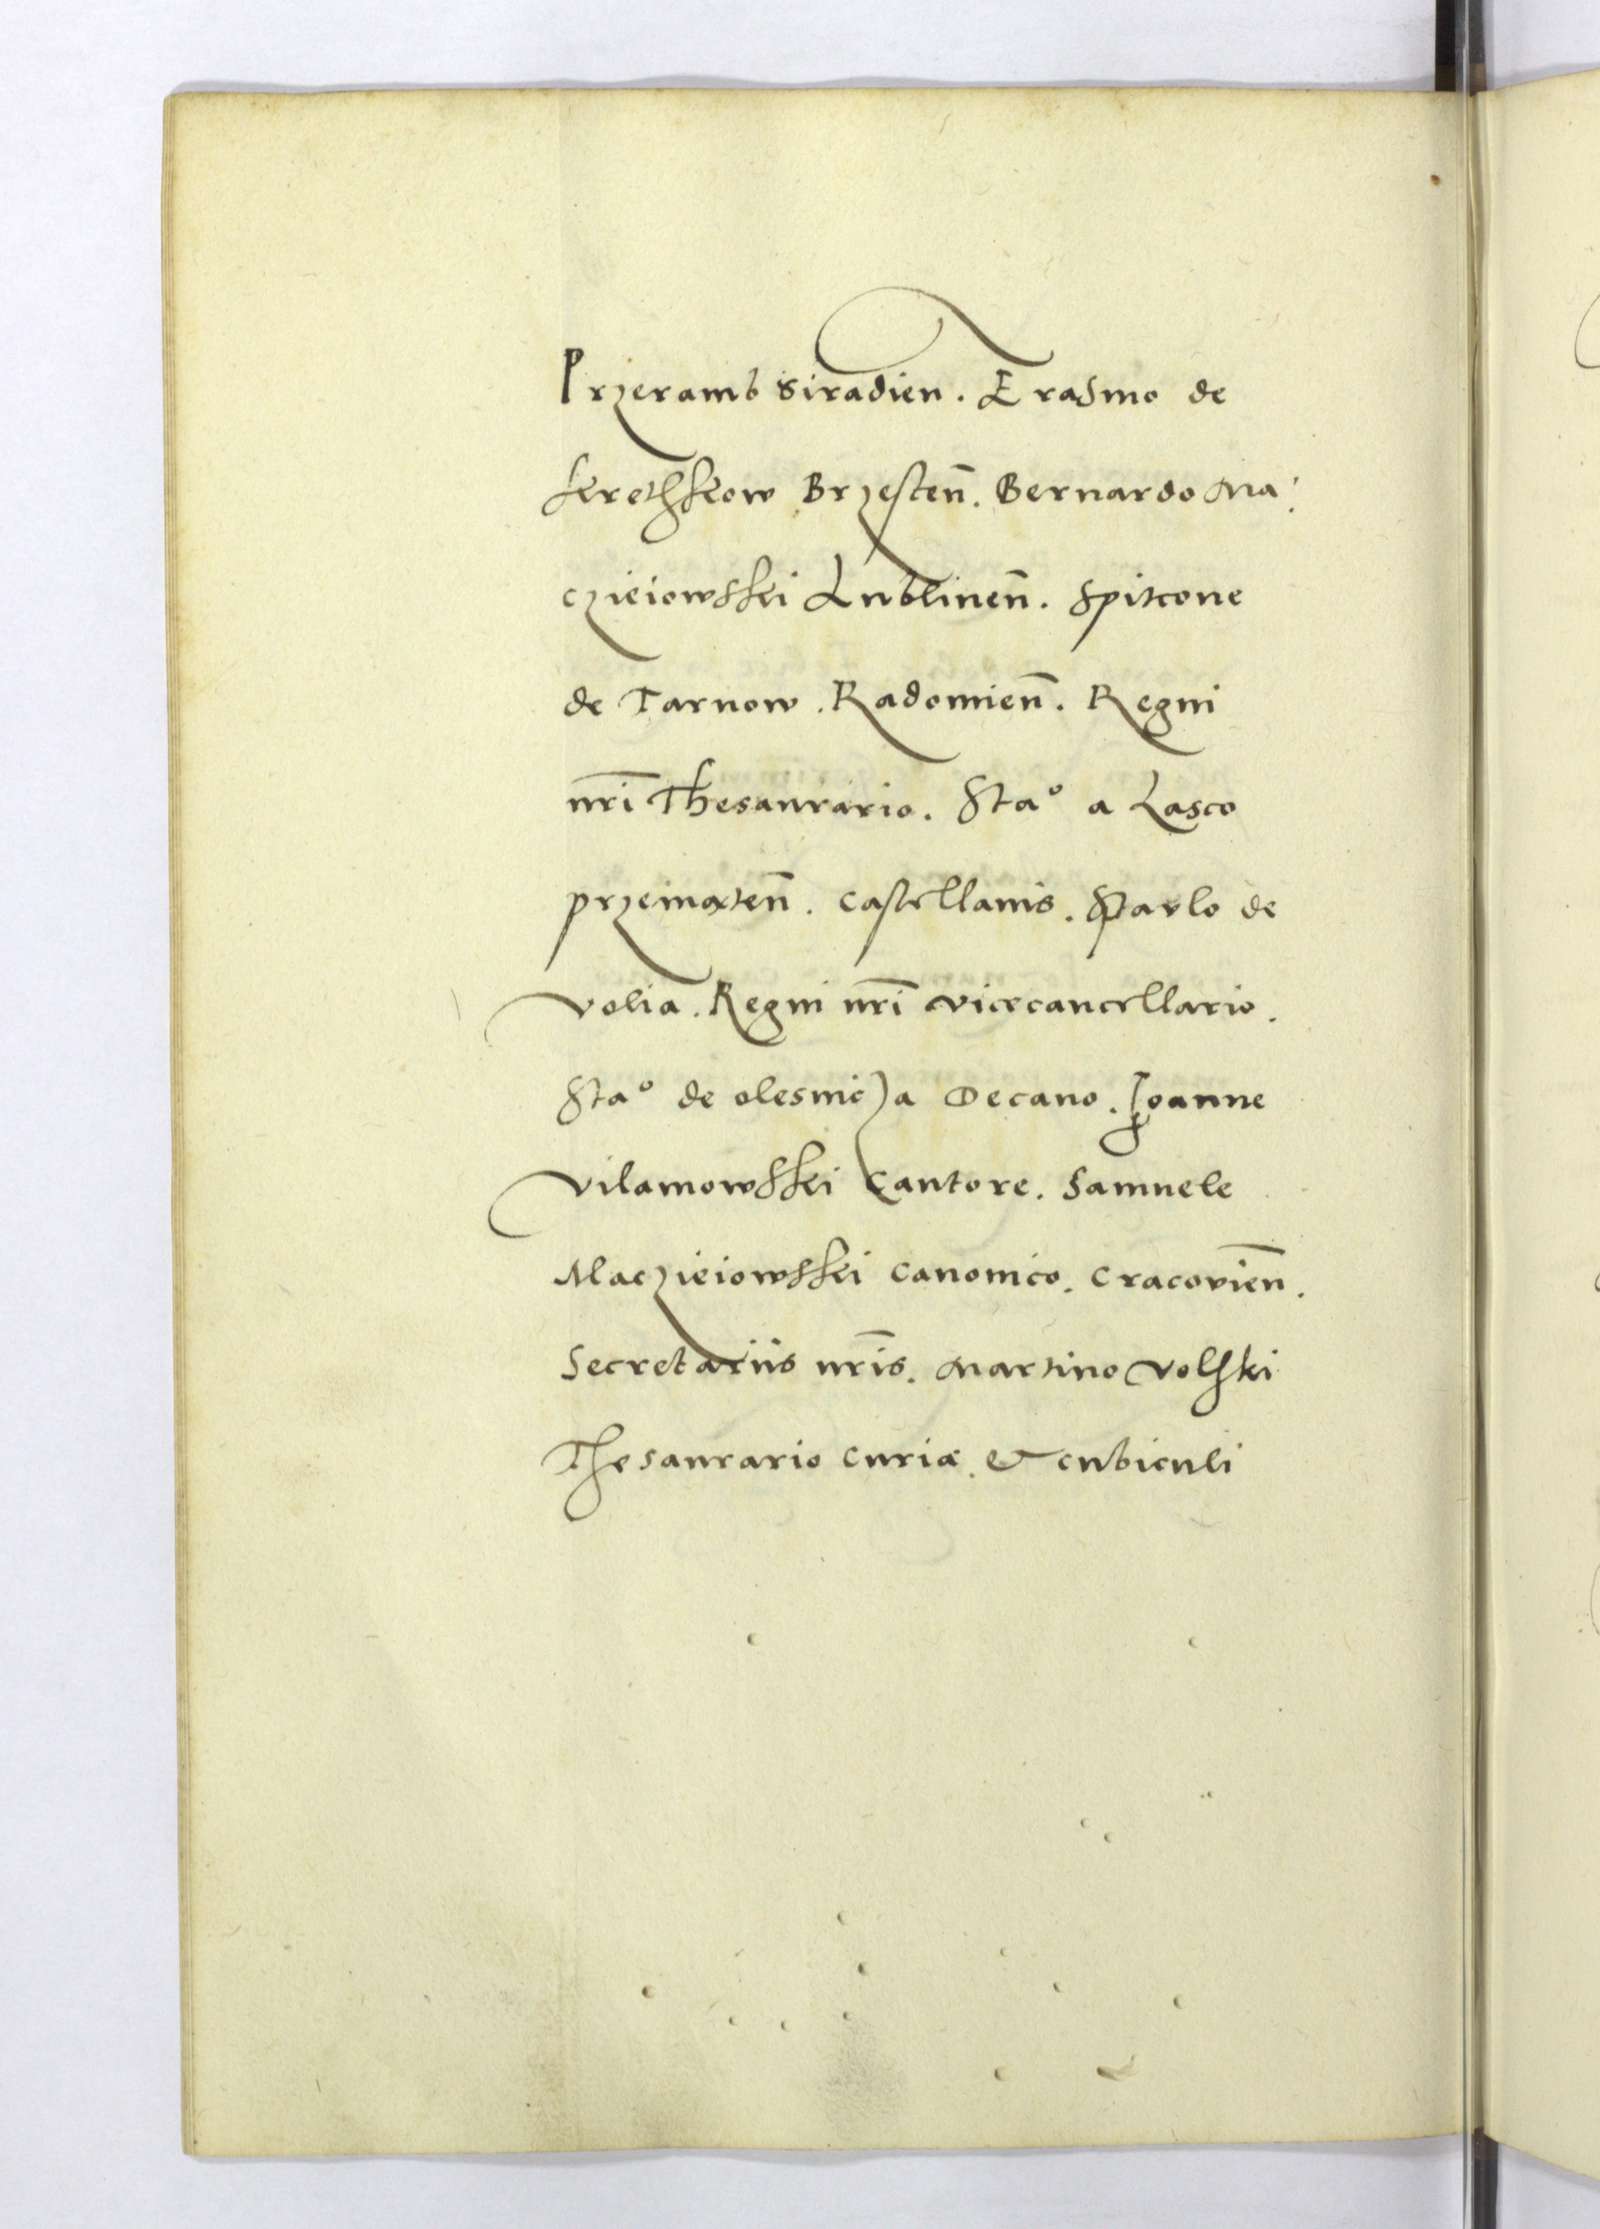 Przeramb Siradien. Erasmo de
krethkow Brzesten̄. Bernardo Ma:
czieiowski Lublinen̄. Spitcone
de Tarnow. Radomien̄. Regni
nr̄i Thesaurario. Sta° a Lasco
przemeten̄. Castellanis. Paulo de
volia. Regni nr̄i vicecancellario.
Sta° de olesnicza Decano. Joanne
vilamowski Cantore. Samuele
Maczieiowski Canonico. Cracovien̄.
Secretariis nr̄is. Martino volski
Thesaurario curiæ. & cubiculi